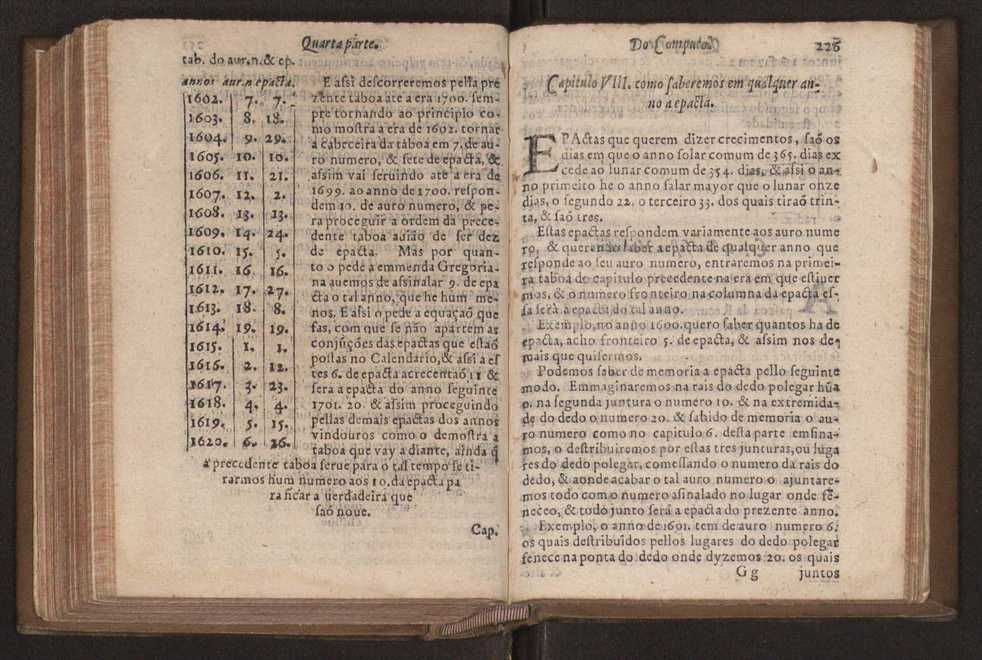 Quarta parte.
tab. do aur.n.& ep.
annos aur.n epacta.
1602. 7. 7.
1603. 8. 18.
1604. 9. 29.
1605. 10. 10.
1606. 11. 21.
1607. 12. 2.
1608. 13. 13.
1609. 14. 24.
1610. 15. 5.
1611. 16. 16.
1612. 17. 27.
1613. 18. 8.
1614. 19. 19.
1615. 1. 1.
1616. 2. 12.
1617. 3. 23.
1618. 4. 4.
1619. 5. 15.
1620. 6. 26.
E assi descorreremos pella pre
zente taboa ate a era 1700. sem-
pre tornando ao principio co-
mo mostra a era de 1602. tornar
a cabeceira da taboa em 7. de au-
ro numero, & sete de epacta, &
assim vai seruindo ate a era de
1699. ao anno de 1700. respon-
dem 10. de auro numero, & pe-
ra proceguir a ordem da prece-
dente taboa auião de ser dez
de epacta. Mas por quan-
to o pede a emmenda Gregoria-
na auemos de assinalar 9. de epa
cta o tal anno, que he hum me-
nos. E assi o pede a equaçaõ que
fas, com que se não apartem as
conjũções das epactas que estaõ
postas no Calendario, & assi a es
tes 6. de epacta acrecentaõ 11 &
sera epacta do anno seguinte
1701. 20. & assim proceguindo
pellas demais epactas dos annos
vindouros como o demostra a
taboa que vay a diante, ainda q̃
a precedente taboa serue para o tal tempo se ti-
rarmos hum numero aos 10. da epacta pa
ra ficar a verdadeira que
saõ noue.
Cap.
Do Computo. 226
Capitulo VIII. como saberemos em qualquer an-
no a epacta.
EPActas que querem dizer crecimentos, saõ os
dias em que o anno solar comum de 365. dias ex
cede ao lunar comum de 354. dias, & assi o an-
no primeiro he o anno salar mayor que o lunar onze
dias, o segundo 22. o terceiro 33. dos quais tiraõ trin-
ta, & saõ tres.
Estas epactas respondem variamente aos auro nume
ro, & querendo saber a epacta de qualquer anno que
responde ao seu auro numero, entraremos na primei-
ra taboa do capitulo precedente na era em que estiuer
mos, & o numero fronteiro na columna da epacta es-
sa será a epacta do tal anno.
Exemplo, no anno 1600. quero saber quantos ha de
epacta, acho fronteiro 5. de epacta, & assim nos de-
mais que quisermos.
Podemos saber de memoria a epacta pello seguinte
modo. Emmaginaremos na rais do dedo polegar hũa
0. na segunda juntura o numero 10. & na extremida-
de do dedo o numero 20. & sabido de memoria o au-
ro numero como no capitulo 6. desta parte emsina-
mos, o destribuiremos por estas tres junturas, ou luga
res do dedo polegar, comessando o numero da rais do
dedo, & aonde acabar o tal auro numero o ajuntare-
mos todo com o numero asinalado no lugar onde fẽ-
neceo, & todo junto será a epacta do prezente anno.
Exemplo, o anno de 1601. tem de auro numero 6.
os quais destribuidos pellos lugares do dedo polegar
fenece na ponta do dedo onde dyzemos 20. os quais
Gg juntos